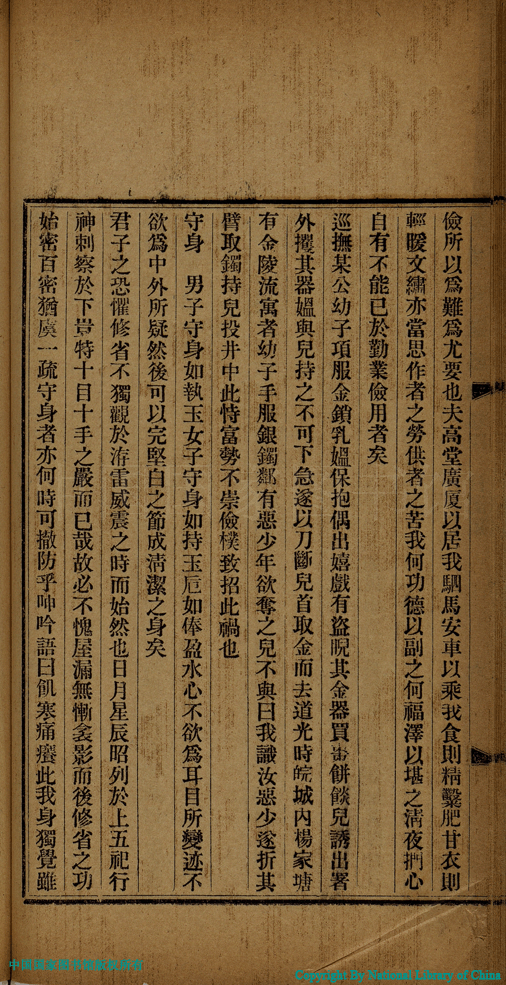 儉所以爲難爲尤要也夫高堂廣厦以居我駟馬安車以乘我食則精鑿肥甘衣則
輕暖文繡亦當思作者之勞供者之苦我何功德以副之何福澤以堪之淸夜捫心
自有不能已於勤業儉用者矣
巡撫某公幼子項服金鎖乳媼保抱偶出嬉戲有盜睨其金器買餅餤兒誘出署
外攫其器媼與兒持之不可下急遂以刀斷兒首取金而去道光時皖城內楊家塘
有金陵流寓者幼子手服銀鐲鄰有惡少年欲奪之兒不與曰我識汝惡少遂折其
臂取鐲持兒投井中此恃富勢不崇儉樸致招此禍也
守身　男子守身如執玉女子守身如持玉卮如俸盈水心不欲爲耳目所變迹不
欲爲中外所疑然後可以完堅白之節成淸潔之身矣
君子之恐懼修省不獨觀於洊雷威震之時而始然也日月星辰昭列於上五祀行
神刺察於下豈特十目十手之嚴而已哉故必不愧屋漏無慚衾影而後修省之功
始密百密猶虞一疏守身者亦何時可撤防乎呻吟語曰飢寒痛癢此我身獨覺雖
中国国家图书馆版权所有
Copyright By National Library of China